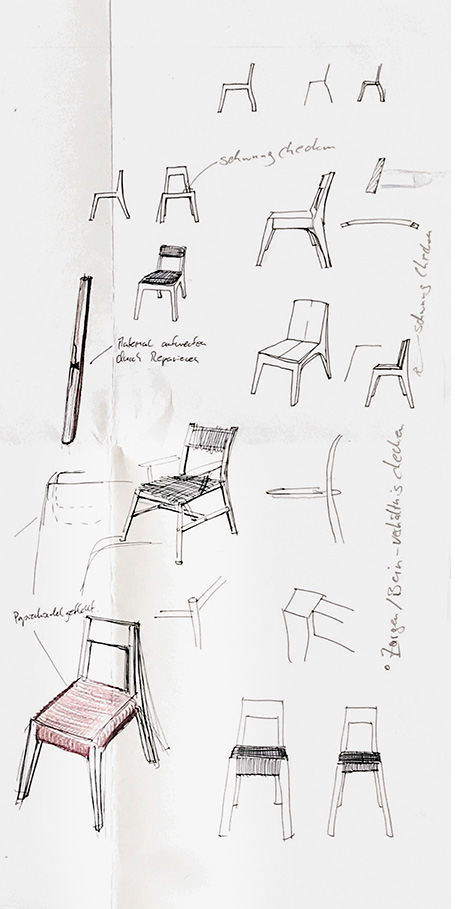 schwung checken
schwung checken
Material aufwerten
durch Reparieren
Papierkordel geflecht
• Zargen/Bein-verhältnis checken